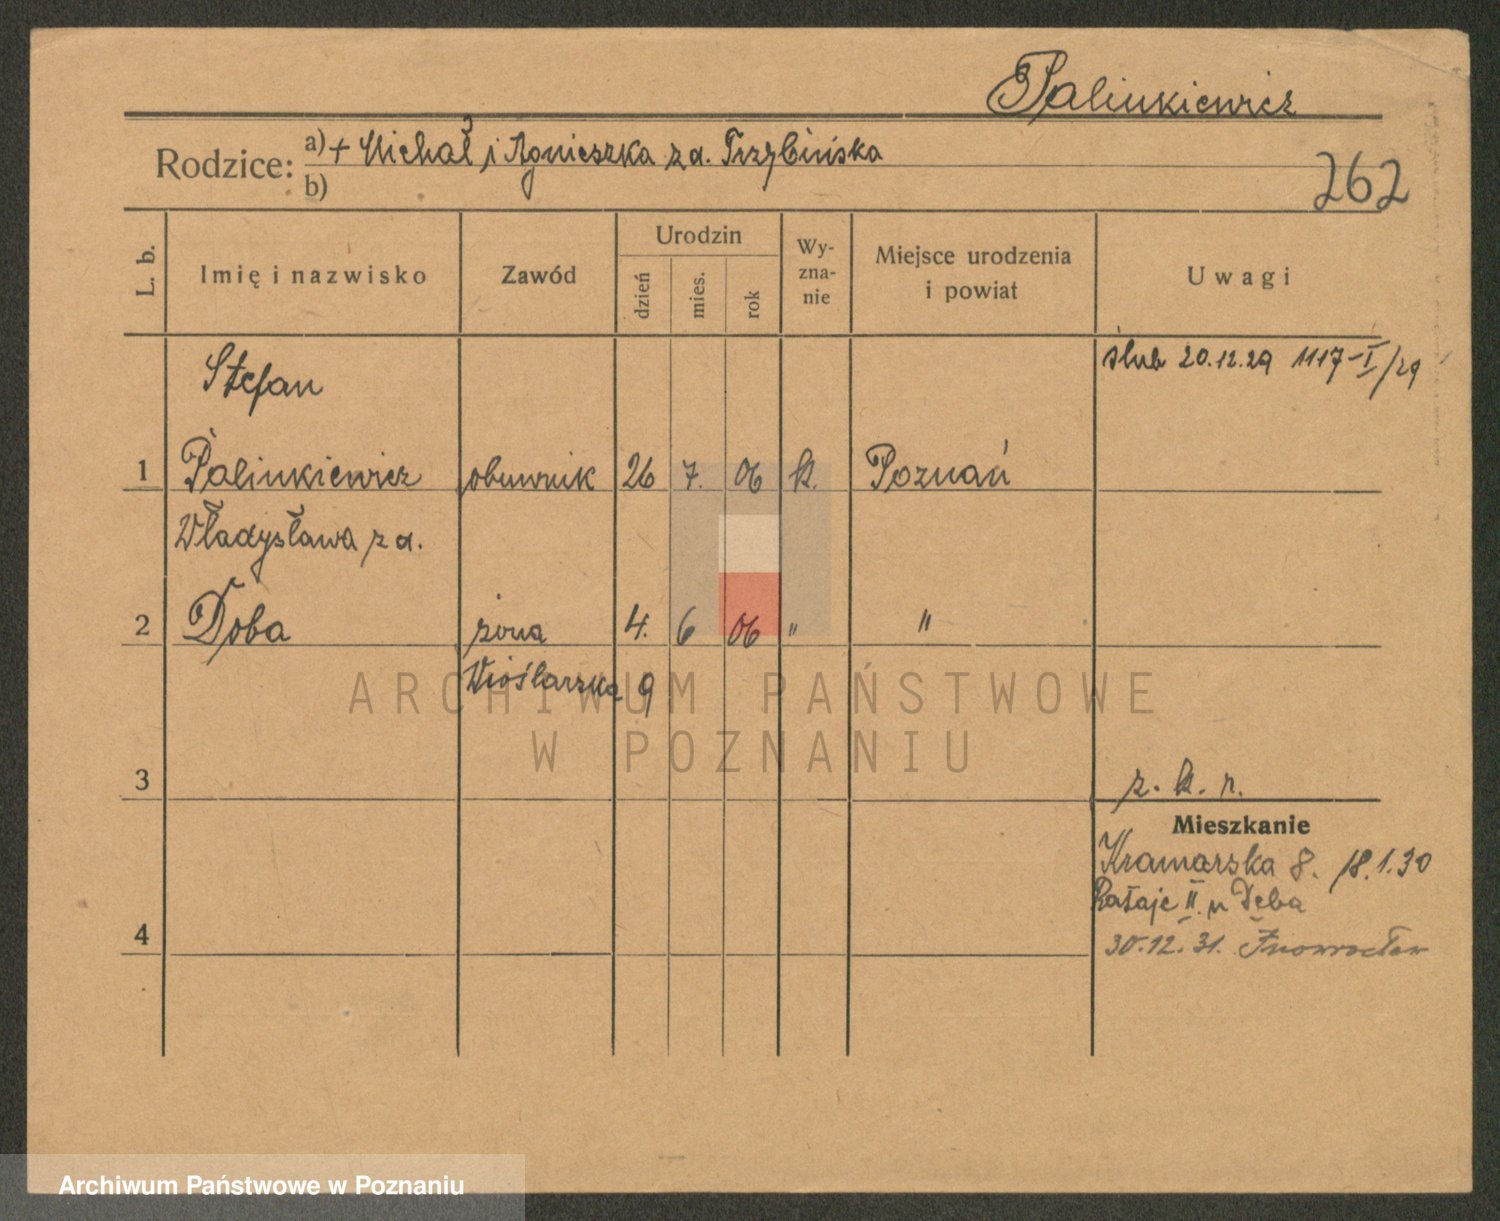 Palinkiewicz
Rodzice: a) + Michał i Agnieszka z d. Trzybińska
b)
262
L. b.
Imię i nazwisko
Zawód
Urodzin
dzień
mies.
rok
Wy-
zna-
nie
Miejsce urodzenia
i powiat
Uwagi
ślub 20.12.29 1117-I/29
Stefan
1 Palinkiewicz obuwnik 26 7. 06 k. Poznań
Władysława z d.
2 Doba żona 4. 6 06 " "
Wioślarska 9
ARCHIWUM PAŃSTWOWE
W POZNANIU
3
z. k. r.
Mieszkanie
Kramarska 8. 18.1.30
Rataje II u Deba
4
30.12.31. Inowrocław
Archiwum Państwowe w Poznaniu